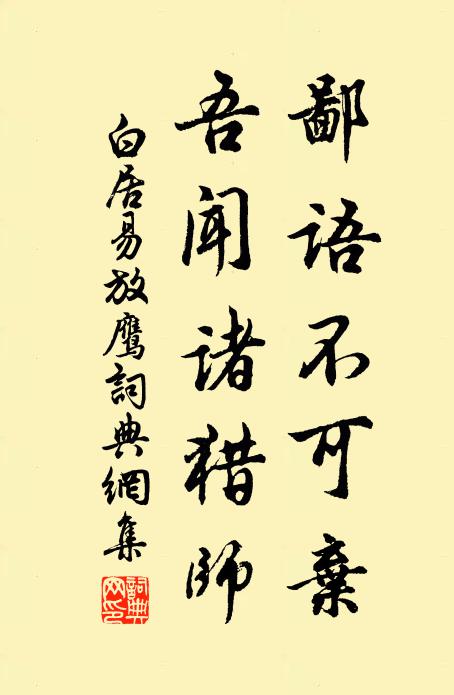 鄙语不可棄
吾闻诸猎师
白居易放鹰詞典網集
詞典网印